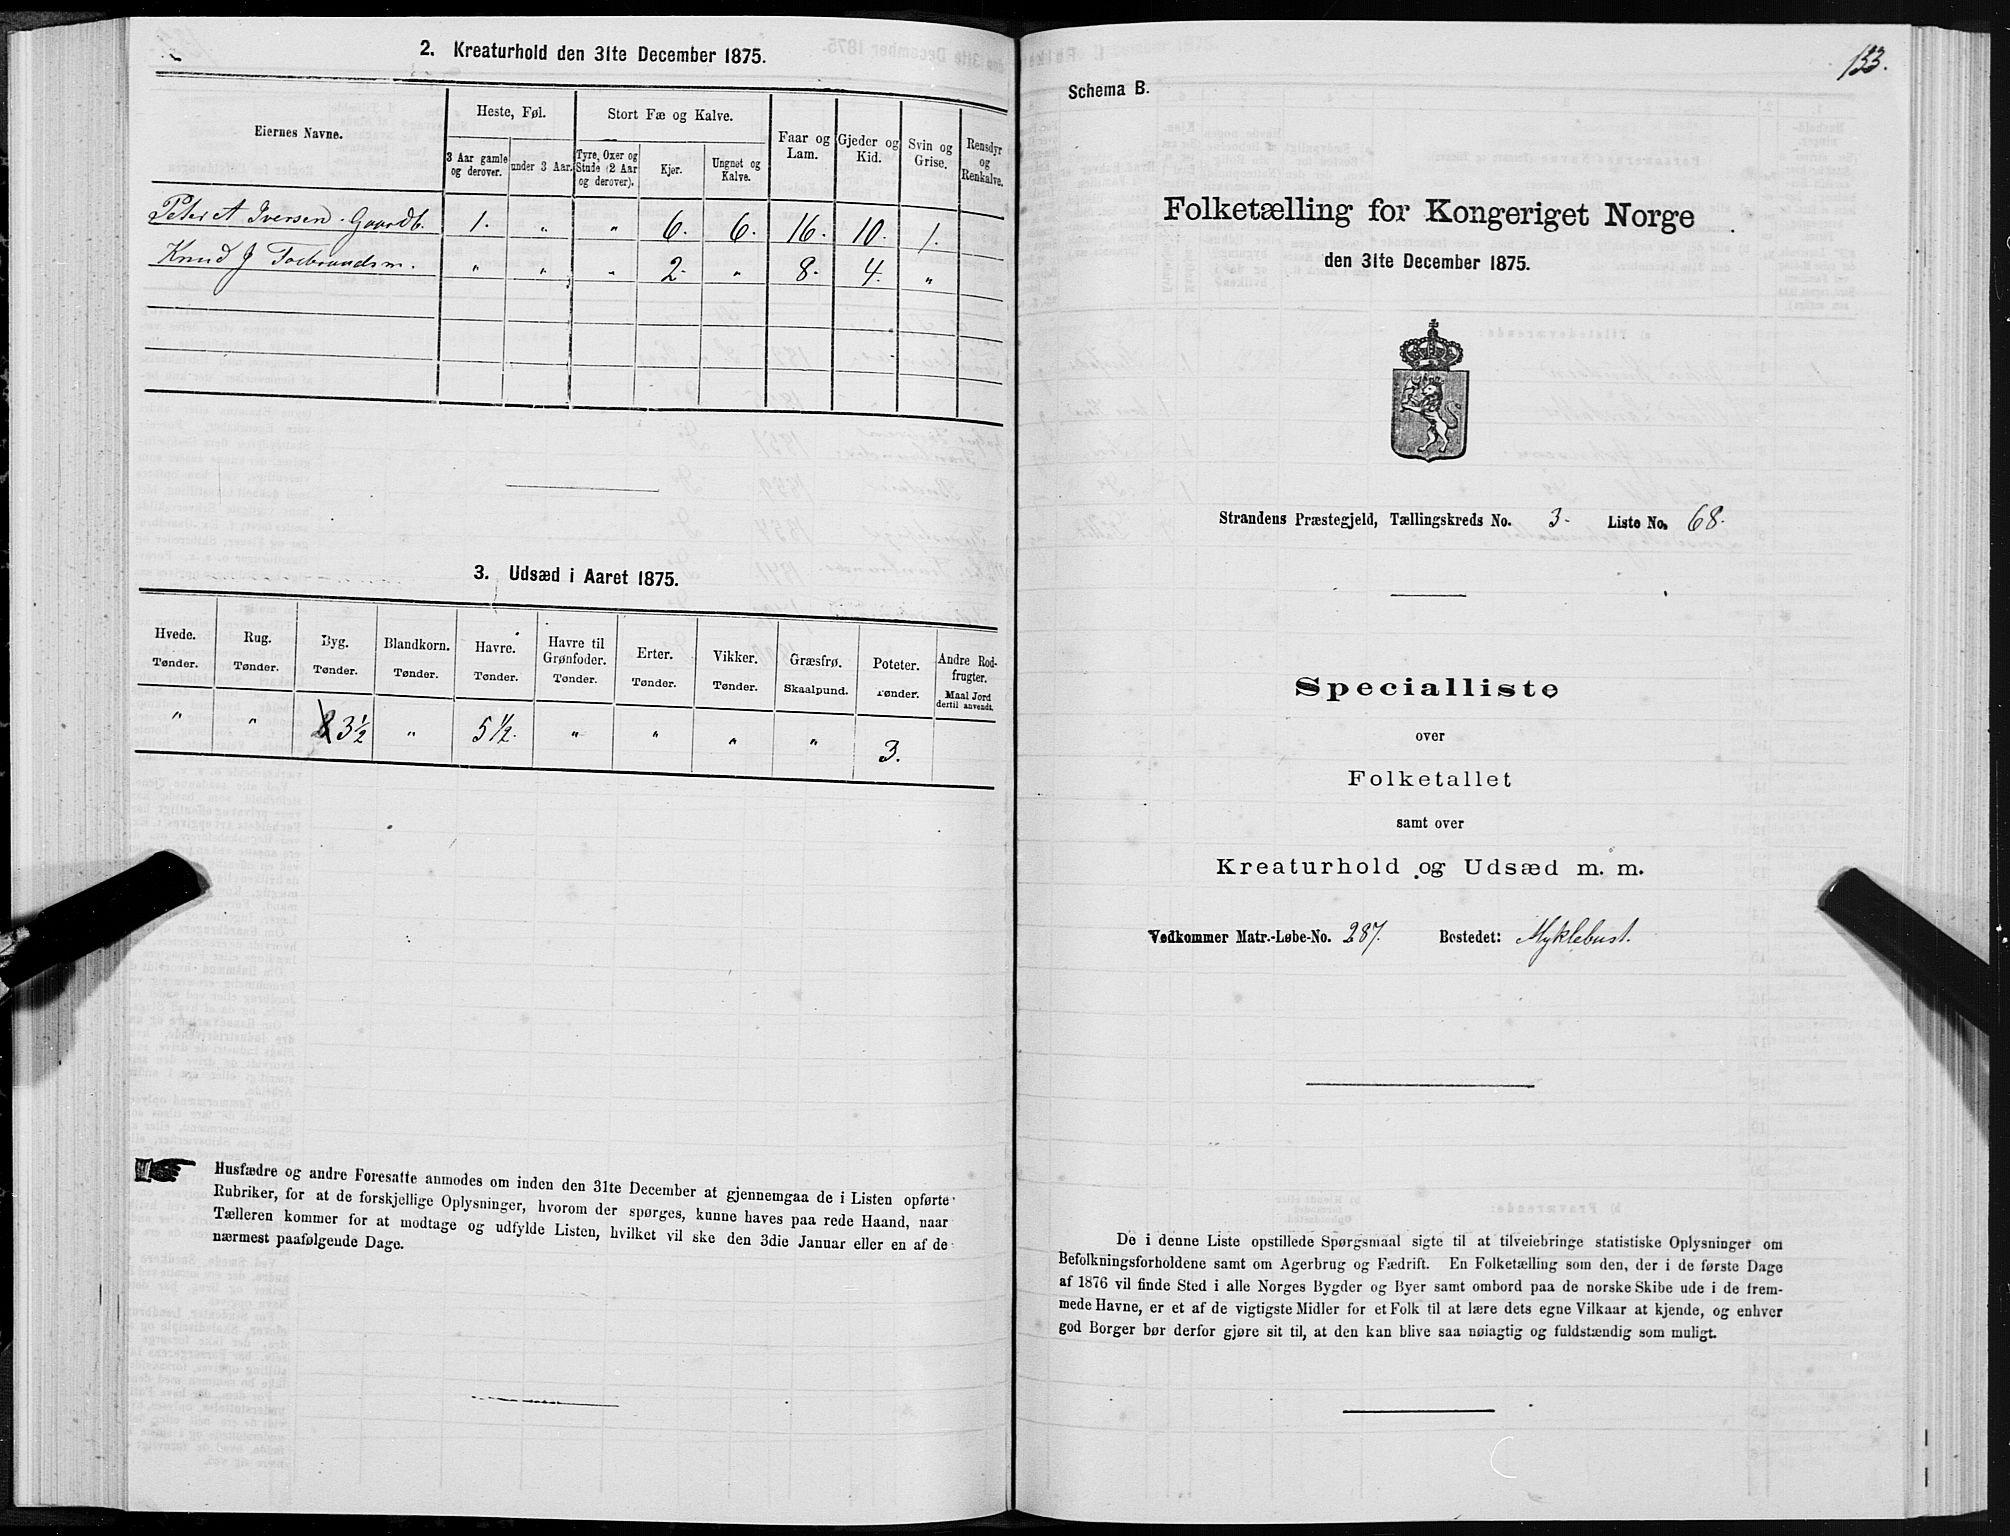 2. Kreaturhold den 31te December 1875.
Eiernes Navne.
Heste, Føl.
Stort Fæ og Kalve.
Faar og Lam.
Gjeder og Kid.
Svin og Grise.
Rensdyr og Renkalve.
3 Aar gamle og derover.
under 3 Aar.
Tyre, Oxer og Stude (2 Aar og derover).
Kjør.
Ungnøt og Kalve.
Peter A Iversen. Gaardb. 1. " " 6. 6. 16. 10. 1.
Knud J " " " 2. " 8. 4. "
3. Udsæd i Aaret 1875.
Hvede. Rug. Byg. Blandkorn. Havre. Havre til Grønfoder. Erter. Vikker. Græsfrø. Poteter. Andre Rodfrugter.
Tønder. Tønder. Tønder. Tønder. Tønder. Tønder. Tønder. Tønder. Skaalpund. Tønder. Maal Jord dertil anvendt.
" " 3½ " 5½. " " " " 3.
Husfædre og andre Foresatte anmodes om inden den 31te December at gjennemgaa de i Listen opførte
Rubriker, for at de forskjellige Oplysninger, hvorom der spørges, kunne haves paa rede Haand, naar
Tælleren kommer for at modtage og udfylde Listen, hvilket vil ske den 3die Januar eller en af de
nærmest paafølgende Dage.
133.
Schema B.
Folketælling for Kongeriget Norge
den 31te December 1875.
Strandens Præstegjeld, Tællingskreds No. 3. Liste No. 68.
Specialliste
over
Folketallet
samt over
Kreaturhold og Udsæd m. m.
Vedkommer Matr.-Løbe-No. 287. Bostedet: Myklebust.
De i denne Liste opstillede Spørgsmaal sigte til at tilveiebringe statistiske Oplysninger om
Befolkningsforholdene samt om Agerbrug og Fædrift. En Folketælling som den, der i de første Dage
af 1876 vil finde Sted i alle Norges Bygder og Byer samt ombord paa de norske Skibe ude i de frem-
mede Havne, er et af de vigtigste Midler for et Folk til at lære dets egne Vilkaar at kjende, og enhver
god Borger bør derfor gjøre sit til, at den kan blive saa nøiagtig og fuldstændig som muligt.